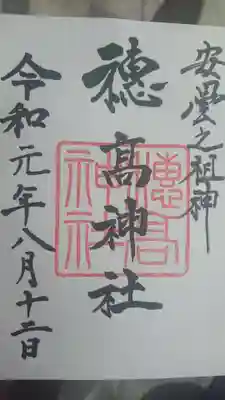 安曇之祖神
穗高神社
令和元年八月十二日
穗高神社